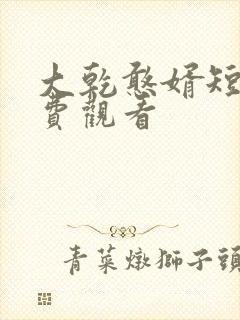 大乾憨婿短
費觀看
青菜燉獅子頭